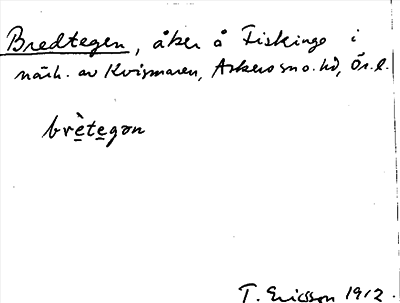 Bredtegen, åker å Fiskinge i
närh. av Kvismaren, Askers sn o. hd, Ör. l.
brètegon
T. Ericsson 1912.